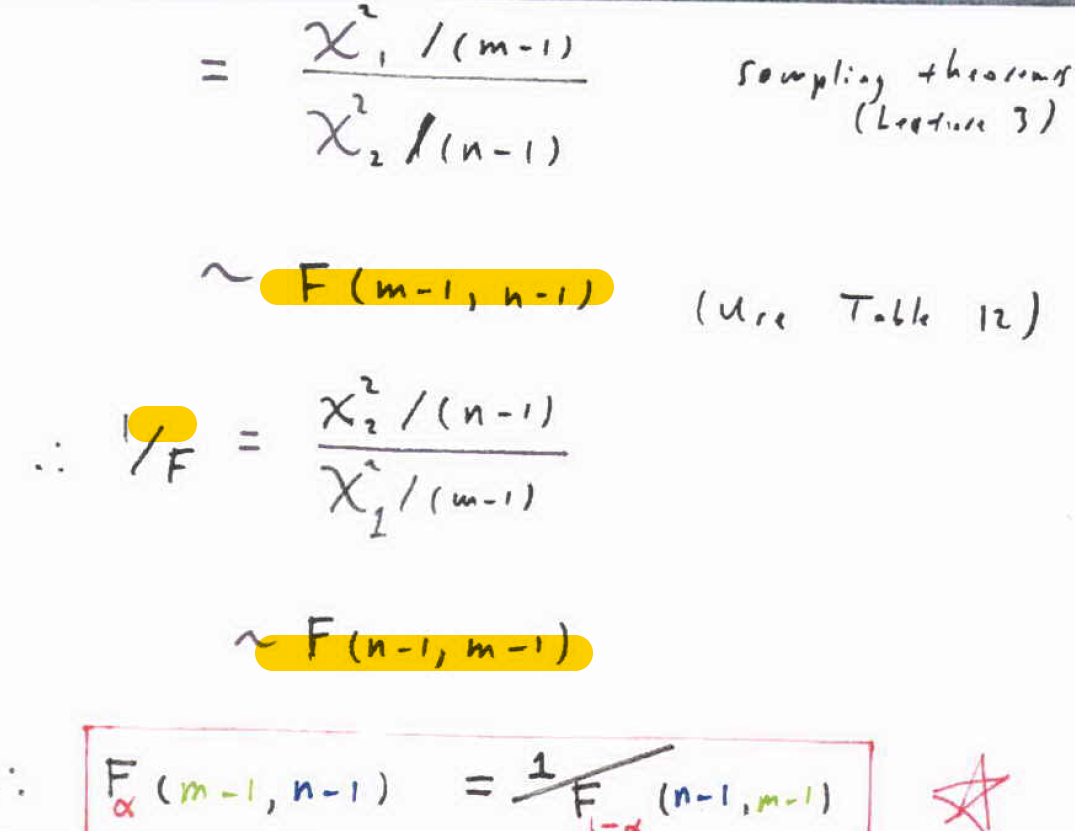 = χ²₁ /(m-1)
χ²₂ /(n-1)
sampling theorems
(Lecture 3)
~ F (m-1, n-1)
(Use Table 12)
∴ 1/F = χ²₂ /(n-1)
χ²₁ /(m-1)
~ F (n-1, m-1)
∴ F_α (m-1, n-1) = 1/F_{1-α} (n-1, m-1)